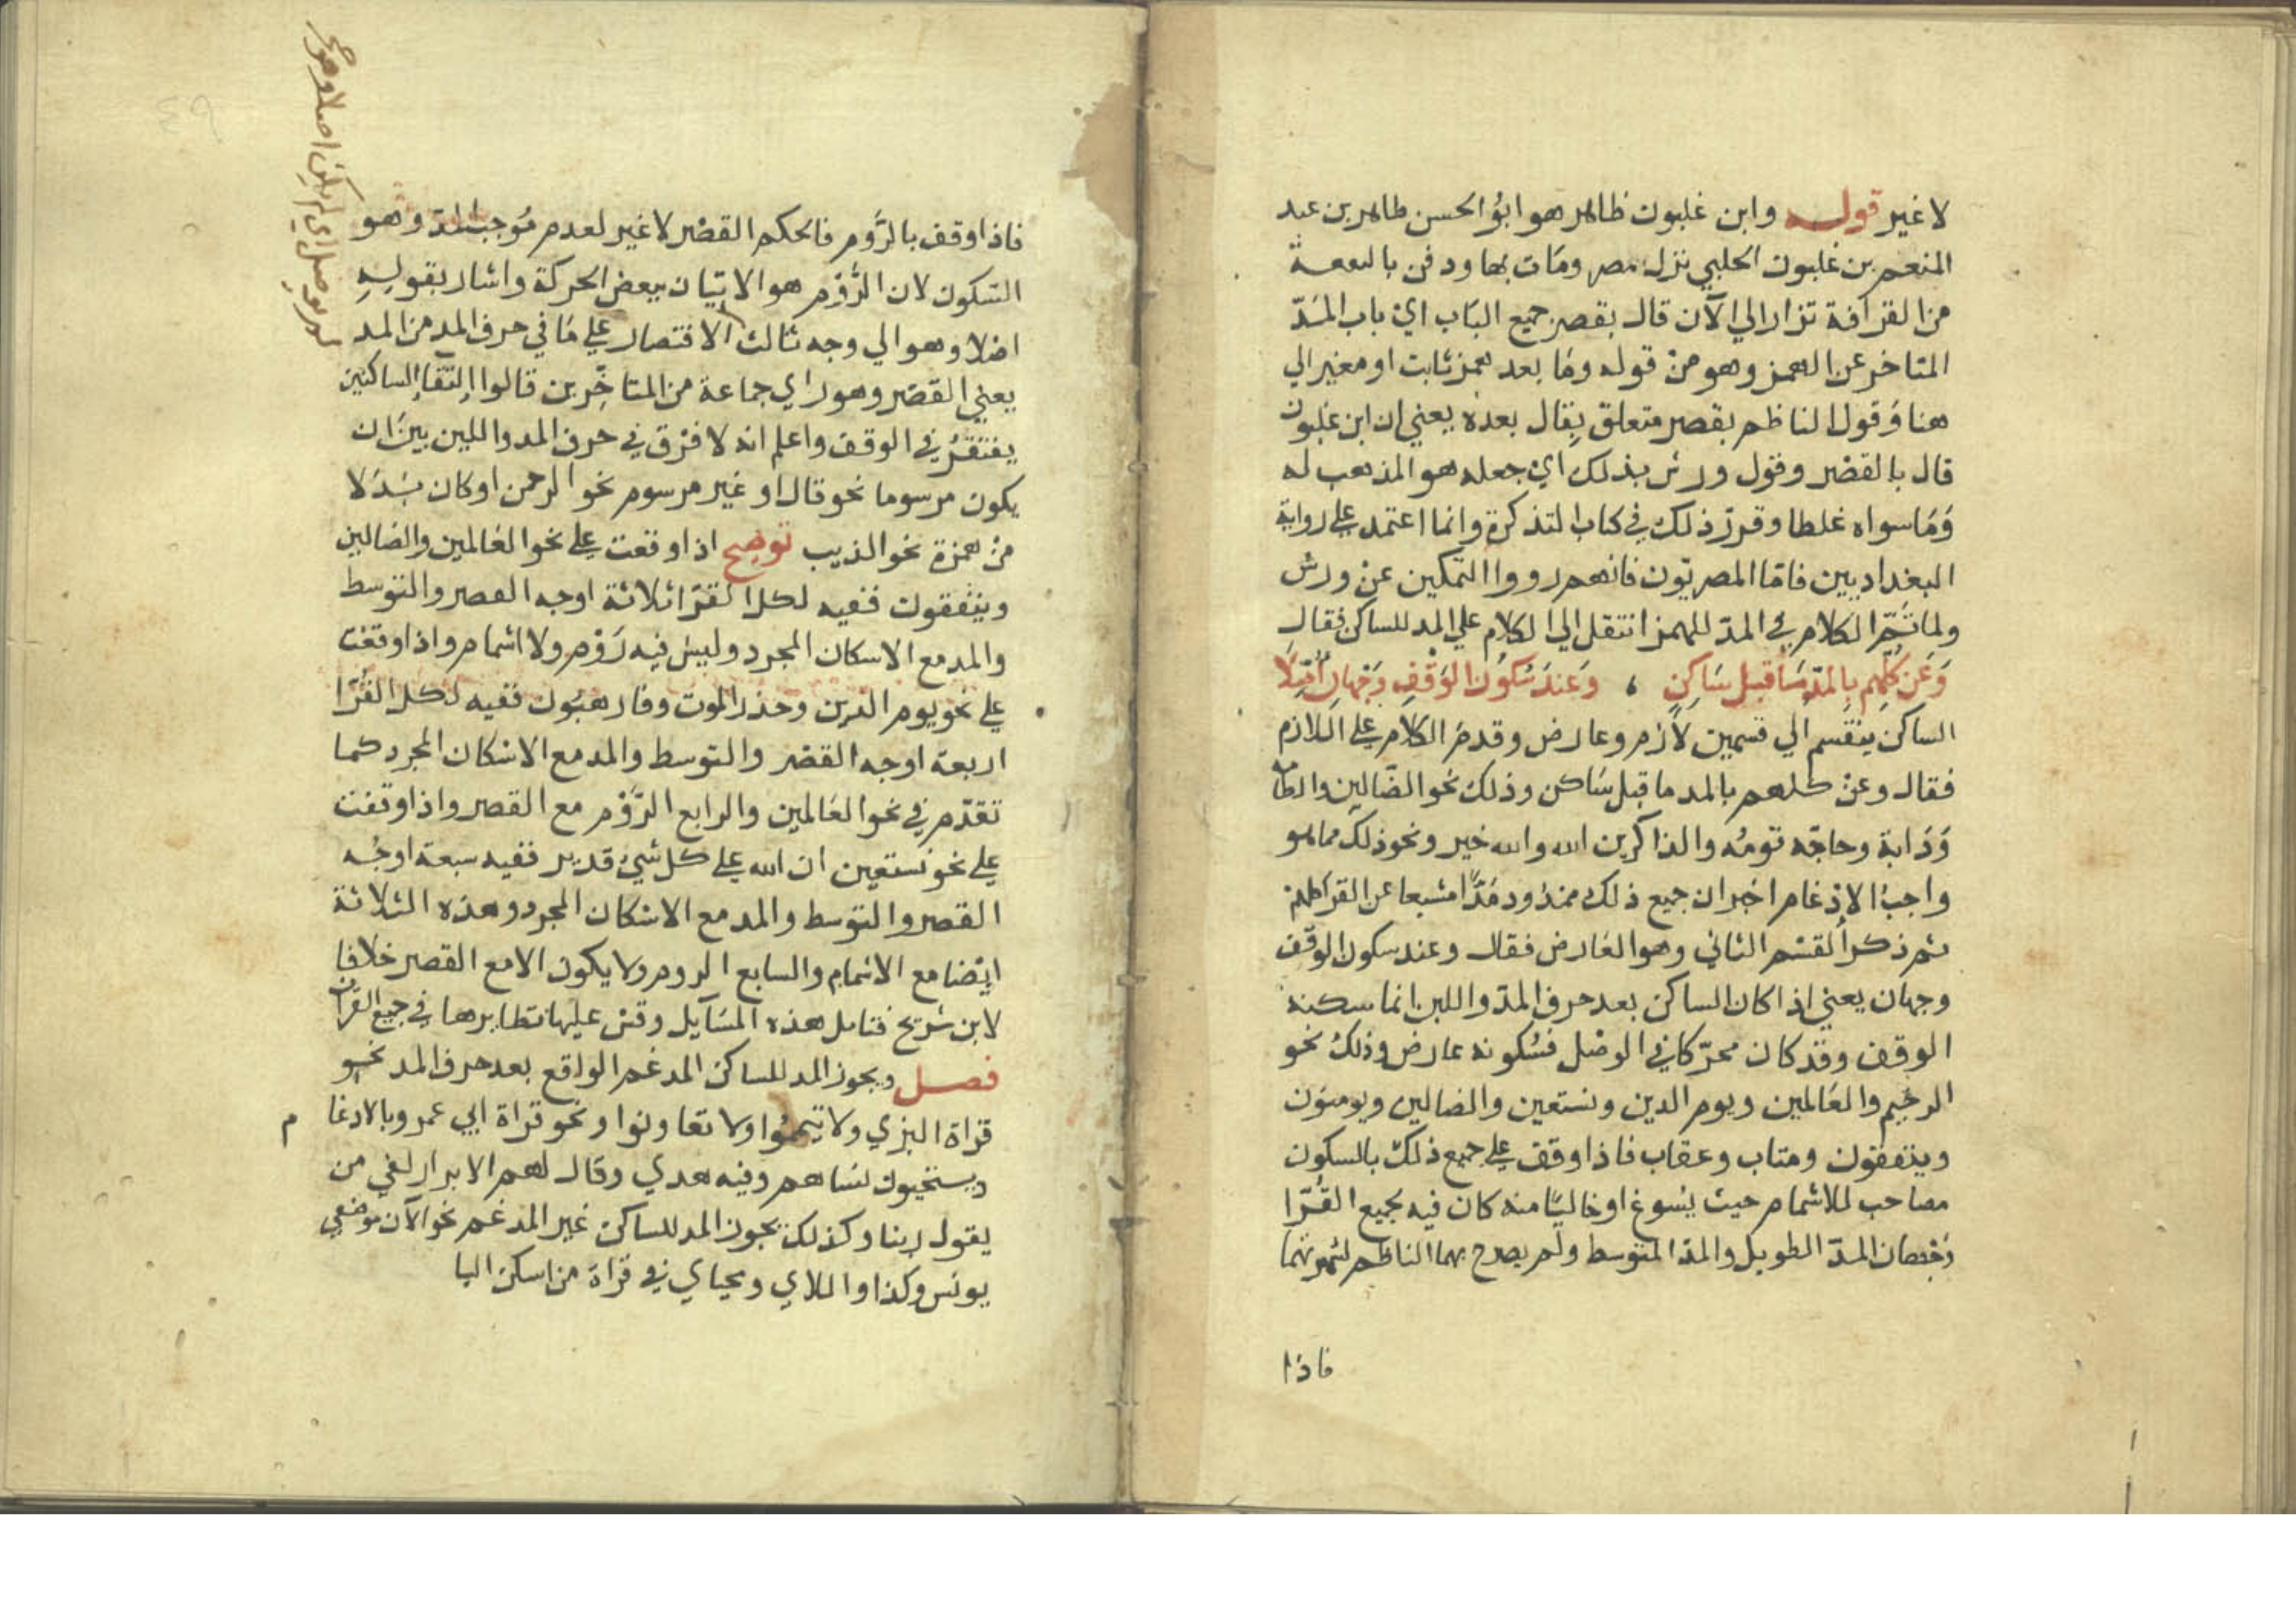 لا غير قوله وابن غلبون طاهر هو ابوُ الحسن طاهر بن عبد
المنعم بن غلبون الحلبي نزل مصر ومَات بها ودفن بالبقعة
من القرافة تزار الي الآن قال بقصر جميع البَاب ايْ باب المَدّ
المتاخر عن الهمز وهو منْ قوله ومَا بعد همز ثابت او مغير الي
هنا وَقول الناظم بقصر متعلق بِقال بعده يعني ان ابن غلبون
قال بالقصْر وقول ورش بذلك ايْ جعله هو المذهب له
وَمَا سواه غلطا وقررَ ذلك في كتاب التذكرة وانما اعتمد علي رواية
البغداديين فامّا المصريّون فانهم رووا التمكين عنْ ورش
ولما تمَّمَ الكلام في المدّ للهمز انتقل الي الكلام علي المد للساكن فقال
وَعَن كُلِّهِم بِالمَدِّ مَا قَبلَ سَاكِنٍ ، وَعِندَ سُكوُنِ الوَقْفِ وَجْهَانِ أُصِّلَا
الساكن ينقسم الي قسمين لاَزم وعارض وقدمَ الكلام علي اللازم
فقال وعنْ كلهم بالمد ما قبل سَاكن وذلك نحو الضّالين والطامة
وَدَابة وحاجّه قومُه والذاكرين الله والله خير ونحو ذلك مما هو
واجبُ الادْغام اخبر ان جميع ذلك ممدُود مَدًّا مشبعا عن القرا كلهم
ثم ذكر القسْم الثاني وهو العَارض فقال وعند سكون الوقف
وجهان يعني اذا كان الساكن بعد حرف المدّ واللين انما سكنه
الوقف وقدْ كان محرّكا في الوصْل فسُكونه عارض وذلك نحو
الرحيم والعَالمين ويوم الدين ونستعين والضالين ويومنون
وينفقون ومتاب وعقاب فاذا وقف علي جميع ذلك بالسكون
مصاحب للاشمام حيث يسُوغ او خاليًا منه كان فيه لجميع القُرّا
وَجْهان المدّ الطويل والمدّ المتوسط ولم يصرح بهما الناظم لشهرتهما
فاذا
فاذا وقف بالرَّوم فالحكم القصْر لا غير لعدم مُوجب المدّ وهو
السّكون لان الرَّوْم هو الاتيان ببعض الحركة واشار بقولهِ
اصلا وهو الي وجه ثالث الاقتصار علي مَا في حرف المد من المد
يعني القصْر وهو راي جماعة من المتاخّرين قالوا التقا الساكنين
يغتفرُ في الوقف واعلم انه لا فرْق في حرف المد واللين بينَ ان
يكون مرسوما نحو قال او غير مرسوم نحو الرحمن او كان بَدَلا
منْ همزة نحو الذيب توضيح اذا وقفت علي نحو العَالمين والضالين
وينفقون ففيه لكل القرّا ثلاثة اوجه القصر والتوسط
والمد مع الاسكان المجرد وليسَ فيه رَوْم ولا اشمام واذا وقفت
علي نحو يوم الدين وحذر الموت وفارهبُون ففيه لكل القُرّا
اربعة اوجه القصْر والتوسط والمد مع الاسكان المجرد كما
تقدّم في نحو العَالمين والرابع الرّوْم مع القصر واذا وقفت
علي نحو نستعين ان الله علي كل شيْ قدير ففيه سبعة اوجُه
القصر والتوسط والمد مع الاسكان المجرد وهذه الثلاثة
ايْضا مع الاشمام والسابع الروم ولا يكون الا مع القصر خلافا
لابن شريح فتامل هذه المسَايل وقسْ عليها نظايرها في جميع القران
فصل ويجوز المد للساكن المدغم الواقع بعد حرف المد نحو
قراة البزي ولا تيمّموُا ولا تعاونوا ونحو قراة ابي عمرو بالادغام
ويستحيون نسَاهم وفيه هدي وقال لهم الابرار لفي من
يقول ربنا وكذلك يجوز المد للساكن غير المدغم نحو الآن موضعي
يونس وكذا واللاي ومحياي في قراة من اسكن اليا